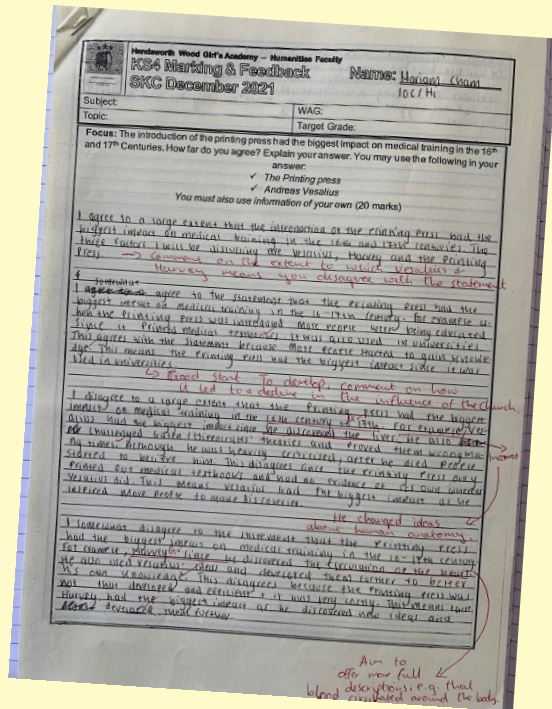 Handsworth Wood Girl's Academy – Humanities Faculty
KS4 Marking & Feedback
SKC December 2021
Name: Mariam Cham
10C/Hi
Subject:
WAG:
Topic:
Target Grade:
Focus: The introduction of the printing press had the biggest impact on medical training in the 16th
and 17th Centuries. How far do you agree? Explain your answer. You may use the following in your
answer:
✓ The Printing press
✓ Andreas Vesalius
You must also use information of your own (20 marks)
I agree to a large extent that the introduction of the Printing Press had the
biggest impact on medical training in the 16th and 17th centuries. The
three factors I will be discussing are Vesalius, Harvey and the Printing
Press.
→ Comment on the extent to which Vesalius &
Harvey means you disagree with the statement
somewhat
I agree to the statement that the Printing Press had the
biggest impact on medical training in the 16-17th century. For example w-
hen the Printing Press was introduced more people were being educated
since it printed medical textbooks, it was also used in universities.
This agrees with the statement because more people started to gain knowle-
dge. This means the Printing Press had the biggest impact since it was
used in universities.
↳ Good start. To develop, comment on how
it led to a decline in the influence of the Church.
I disagree to a large extent that the Printing Press had the biggest
impact on medical training in the 16th century to 17th. For example, Ves-
alius had the biggest impact since he discovered the liver. He also
challenged Galen theories and proved them wrong ma-
ny times. Although he was heavily criticised, after he died people
started to believe him. This disagrees since the Printing Press only
printed out medical textbooks and had no evidence of its own whereas
Vesalius did. This means Vesalius had the biggest impact as he
inspired more people to make discoveries.
He changed ideas
about human anatomy.
I somewhat disagree to the statement that the Printing Press
had the biggest impact on medical training in the 16-17th century.
For example, Harvey since he discovered the circulation of the heart.
He also used Vesalius' ideas and developed them further to better
his own knowledge. This disagrees because the Printing Press was
not that developed and efficient, it was very costly. This means that
Harvey had the biggest impact as he discovered new ideas and
developed them further.
Aim to
offer more full
descriptions, e.g. that
blood circulated around the body.